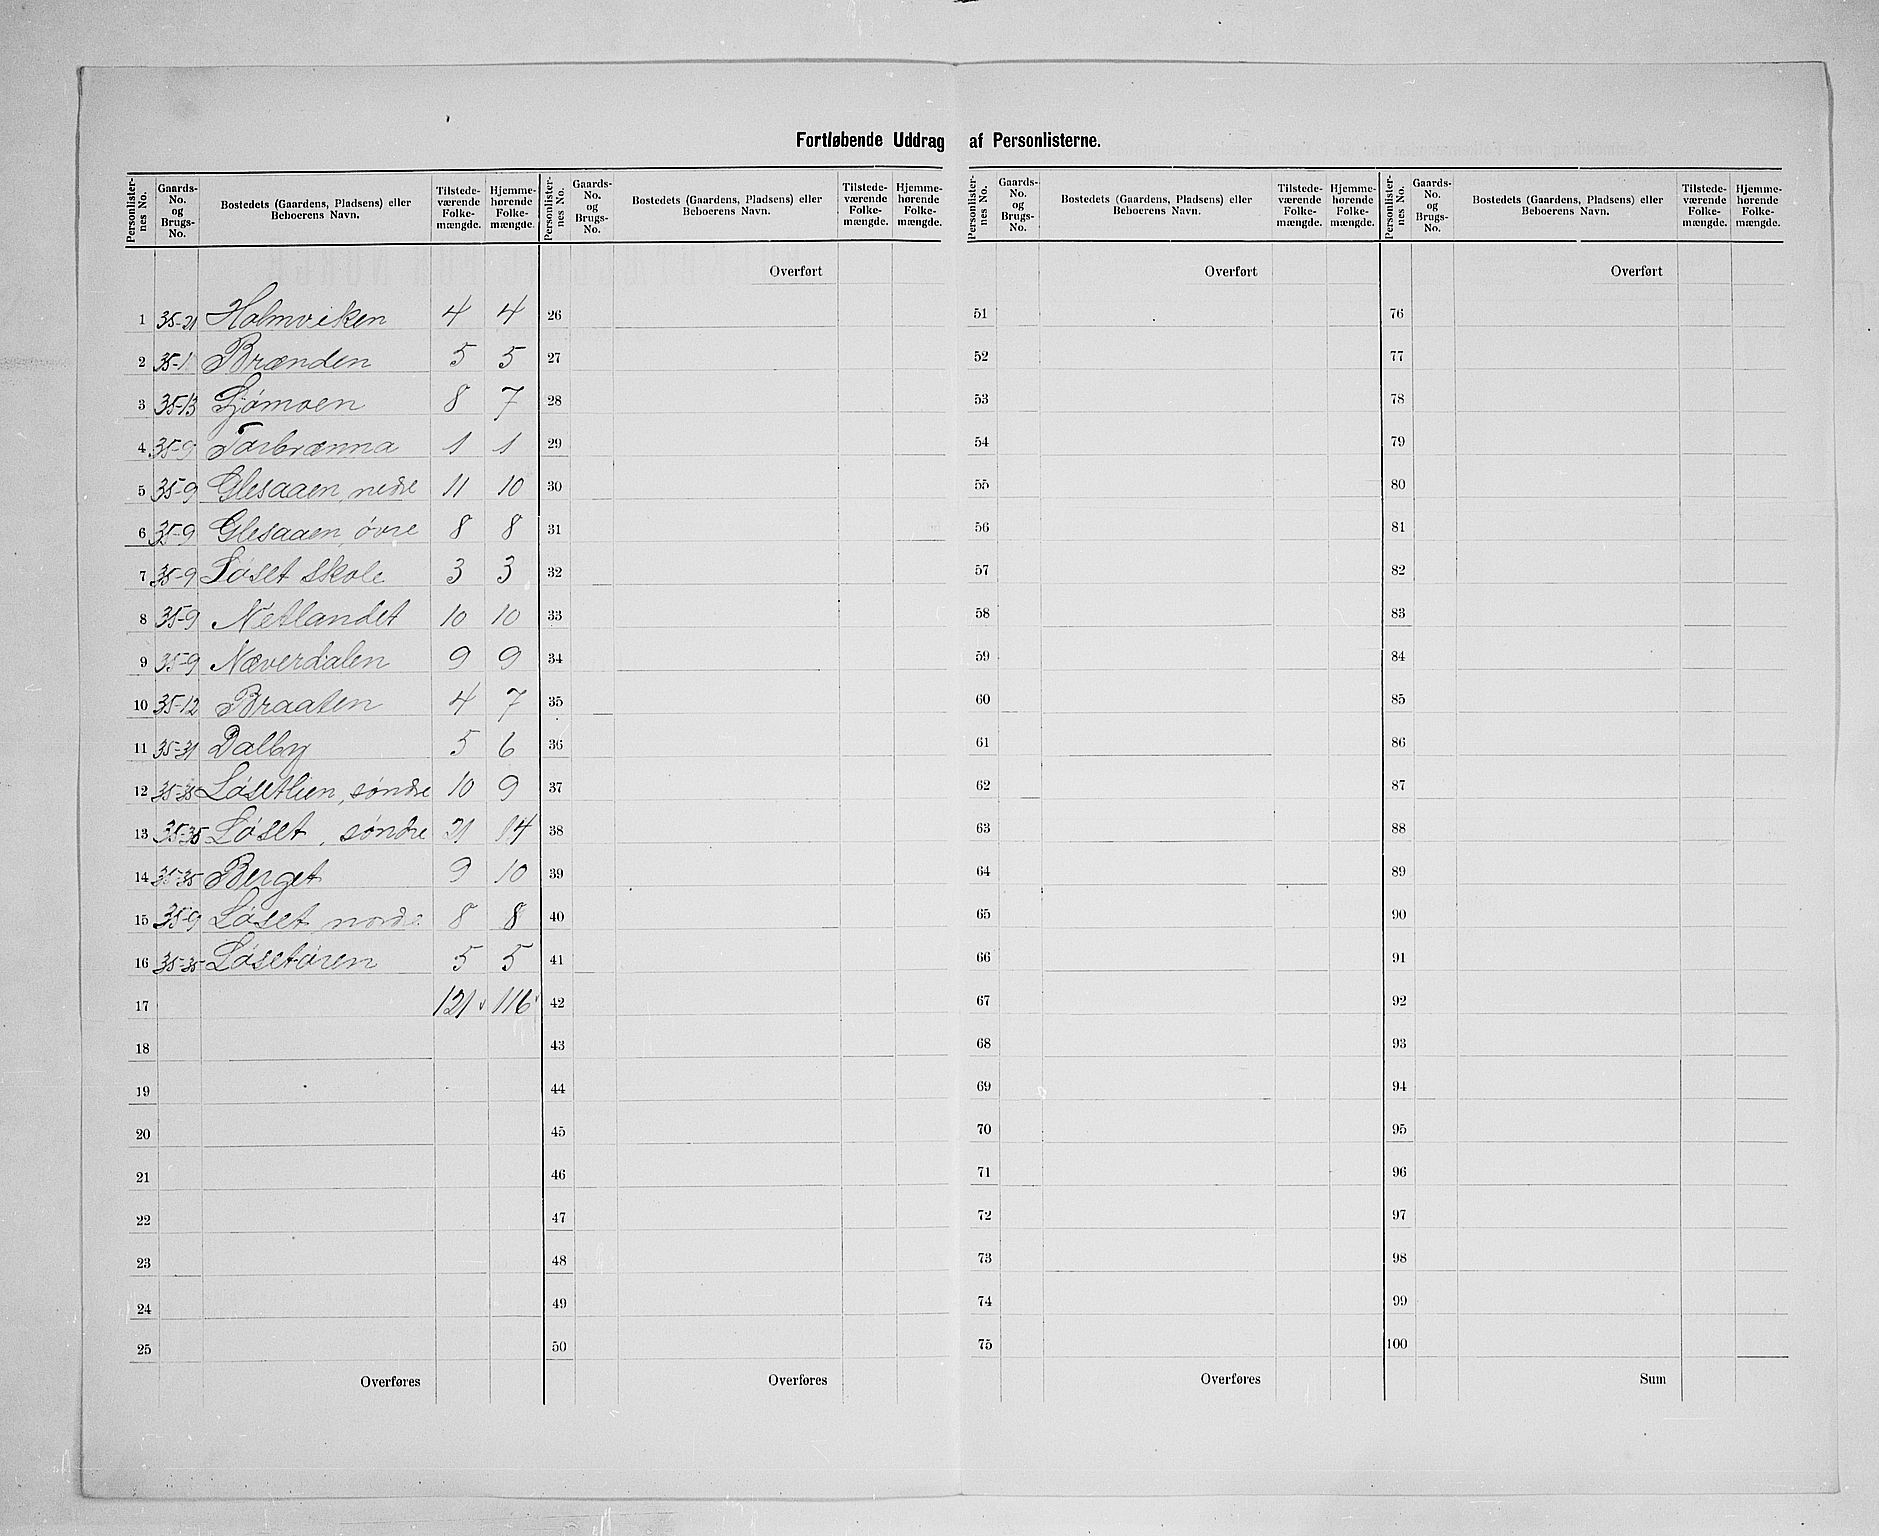 Fortløbende Uddrag af Personlisterne.
Personlister-nes No. Gaards-No. og Brugs-No. Bostedets (Gaardens, Pladsens) eller Beboerens Navn. Tilstede-værende Folke-mængde. Hjemme-hørende Folke-mængde.
1 35-21 Holmviken 4 4
2 35-1 Brænden 5 5
3 35-13 Sjømoen 8 7
4 35-9 Tarbrænna 1 1
5 35-9 Glesaaen, nedre 11 10
6 35-9 Glesaaen, øvre 8 8
7 35-9 Løset skole 3 3
8 35-9 Netlandet 10 10
9 35-9 Næverdalen 9 9
10 35-12 Braaten 4 7
11 35-31 Dalby 5 6
12 35-35 Løsetlien, søndre 10 9
13 35-35 Løset, søndre 21 14
14 35-35 Berget 9 10
15 35-9 Løset nordre 8 8
16 35-35 Løsetøren 5 5
17 121 116
18
19
20
21
22
23
24
25
Overføres
Personlister-nes No. Gaards-No. og Brugs-No. Bostedets (Gaardens, Pladsens) eller Beboerens Navn. Tilstede-værende Folke-mængde. Hjemme-hørende Folke-mængde.
Overført
26
27
28
29
30
31
32
33
34
35
36
37
38
39
40
41
42
43
44
45
46
47
48
49
50
Overføres
Personlister-nes No. Gaards-No. og Brugs-No. Bostedets (Gaardens, Pladsens) eller Beboerens Navn. Tilstede-værende Folke-mængde. Hjemme-hørende Folke-mængde.
Overført
51
52
53
54
55
56
57
58
59
60
61
62
63
64
65
66
67
68
69
70
71
72
73
74
75
Overføres
Personlister-nes No. Gaards-No. og Brugs-No. Bostedets (Gaardens, Pladsens) eller Beboerens Navn. Tilstede-værende Folke-mængde. Hjemme-hørende Folke-mængde.
Overført
76
77
78
79
80
81
82
83
84
85
86
87
88
89
90
91
92
93
94
95
96
97
98
99
100
Sum